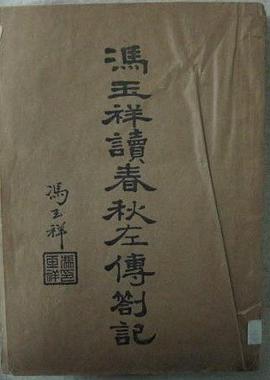 馮玉祥讀春秋左傳劄記
馮玉祥
馮玉祥印